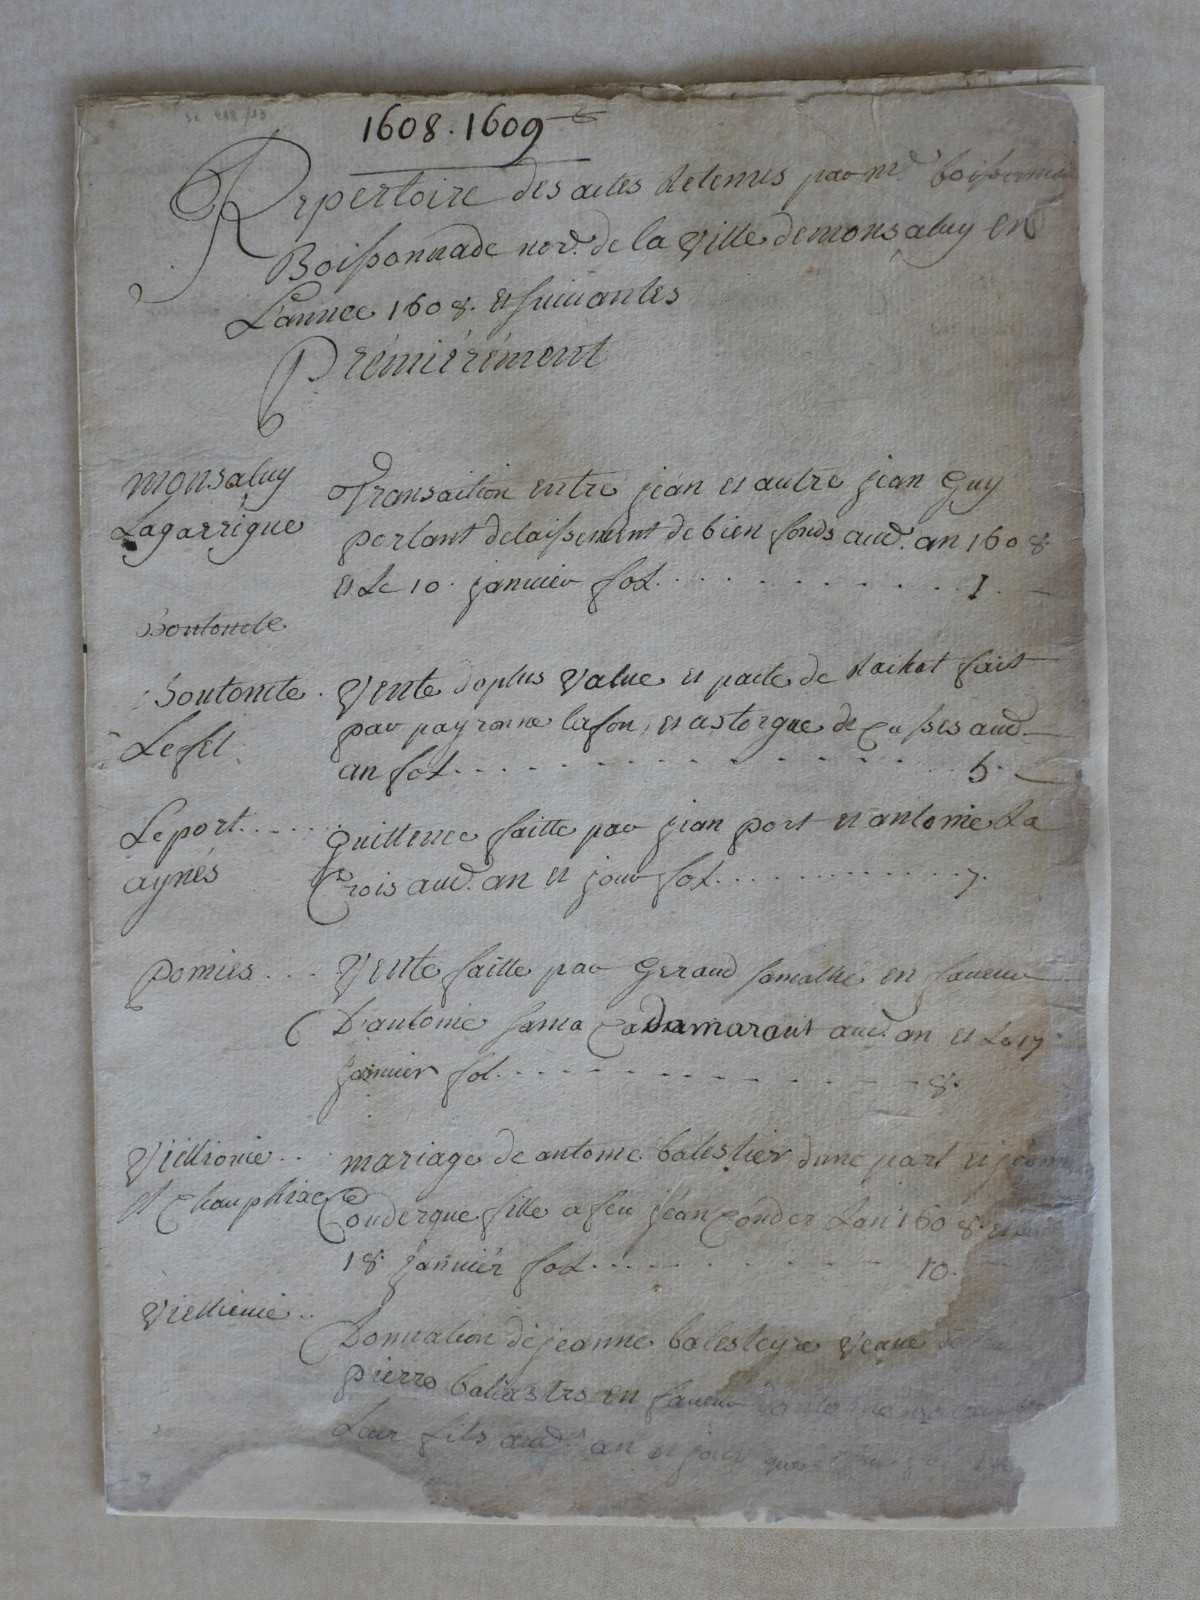 1608. 1609
Repertoire des actes Retenus par mr.
Boissonnade nore. de la ville de monsalvy en
L'annee 1608. et suivantes
Prémiérément
monsalvy Transaction entre jean et autre jean Guy
Lagarrigue portant delaissement de bien fonds aud. an 1608.
et Le 10. janvier fol. . . . . . . . . . . . 1.
Boutonete
Boutonete . Vente de plus value et pacte de Rachat fait
par payronne lafon, et astorgue de aud.
Lefel an fol. . . . . . . . . . . . . 5.
Leport . . . . . quittence faitte par jean port et antoine La
aynés Crois aud. an et jour fol. . . . . . . . . . . 7.
Pomies . . . Vente faitte par Geraud en faveur
D'antoine aud. an et Le 17
janvier fol. . . . . . . . . . . . 8.
Viellevie . . . mariage de antoine balestier dune part et
Couderque fille a feu jean Couder Lan 1608.
18. janvier fol. . . . . . . . . . 10.
Viellevie . . Donnation de jeanne balesteyre veuve
pierre en faveur
Leur fils aud. an et jour